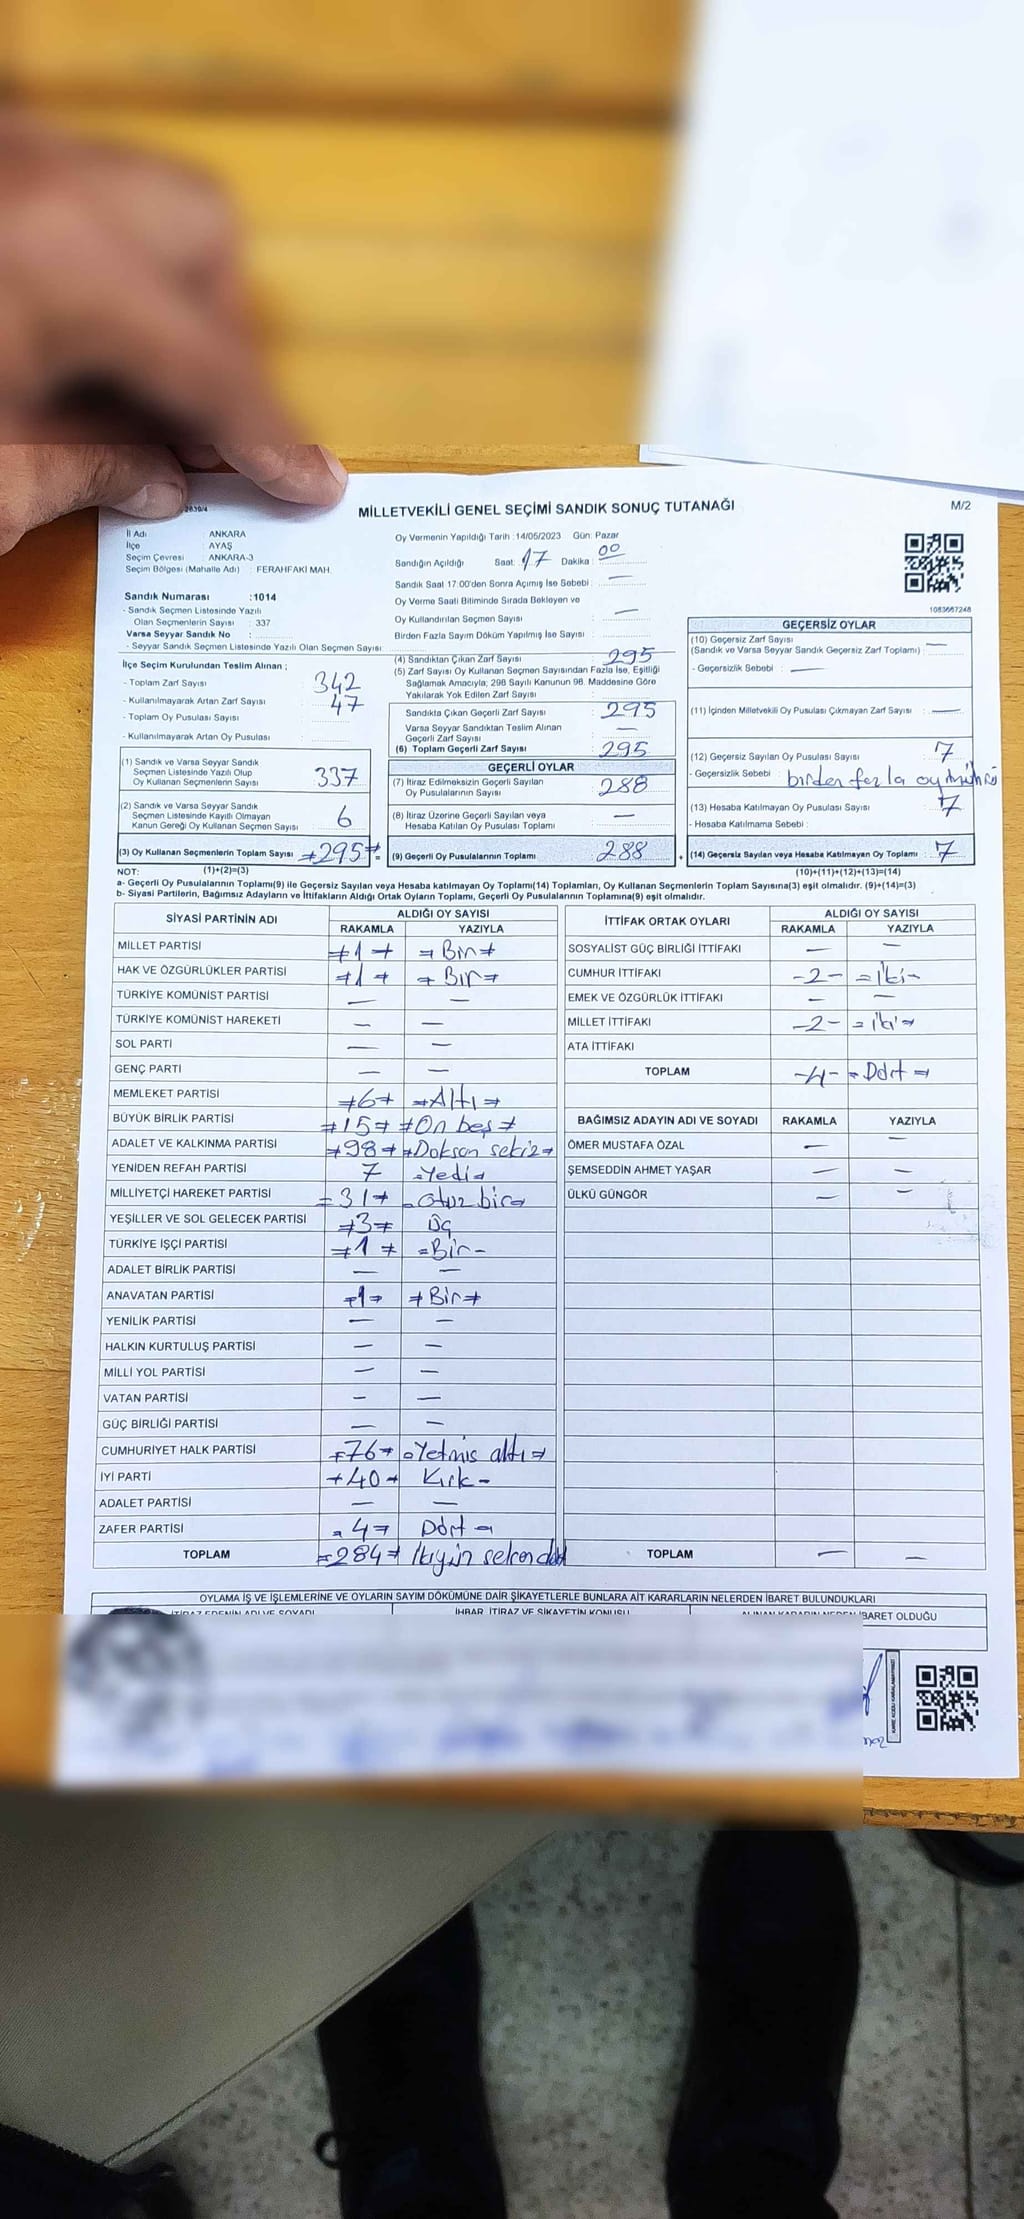 2839/4
MİLLETVEKİLİ GENEL SEÇİMİ SANDIK SONUÇ TUTANAĞI
M/2
İl Adı : ANKARA
İlçe : AYAŞ
Seçim Çevresi : ANKARA-3
Seçim Bölgesi (Mahalle Adı) : FERAHFAKİ MAH.
Sandık Numarası :1014
- Sandık Seçmen Listesinde Yazılı
Olan Seçmenlerin Sayısı : 337
Varsa Seyyar Sandık No :
- Seyyar Sandık Seçmen Listesinde Yazılı Olan Seçmen Sayısı :
Oy Vermenin Yapıldığı Tarih :14/05/2023 Gün: Pazar
Sandığın Açıldığı Saat: 17 Dakika : 00
Sandık Saat 17:00'den Sonra Açılmış İse Sebebi : —
Oy Verme Saati Bitiminde Sırada Bekleyen ve
Oy Kullandırılan Seçmen Sayısı : —
Birden Fazla Sayım Döküm Yapılmış İse Sayısı :
1083667248
İlçe Seçim Kurulundan Teslim Alınan ;
- Toplam Zarf Sayısı : 342
- Kullanılmayarak Artan Zarf Sayısı : 47
- Toplam Oy Pusulası Sayısı :
- Kullanılmayarak Artan Oy Pusulası :
(1) Sandık ve Varsa Seyyar Sandık
Seçmen Listesinde Yazılı Olup
Oy Kullanan Seçmenlerin Sayısı : 337
(2) Sandık ve Varsa Seyyar Sandık
Seçmen Listesinde Kayıtlı Olmayan
Kanun Gereği Oy Kullanan Seçmen Sayısı : 6
(3) Oy Kullanan Seçmenlerin Toplam Sayısı : =295=
(4) Sandıktan Çıkan Zarf Sayısı : 295
(5) Zarf Sayısı Oy Kullanan Seçmen Sayısından Fazla İse, Eşitliği
Sağlamak Amacıyla; 298 Sayılı Kanunun 98. Maddesine Göre
Yakılarak Yok Edilen Zarf Sayısı :
Sandıkta Çıkan Geçerli Zarf Sayısı : 295
Varsa Seyyar Sandıktan Teslim Alınan
Geçerli Zarf Sayısı : —
(6) Toplam Geçerli Zarf Sayısı : 295
GEÇERLİ OYLAR
(7) İtiraz Edilmeksizin Geçerli Sayılan
Oy Pusulalarının Sayısı : 288
(8) İtiraz Üzerine Geçerli Sayılan veya
Hesaba Katılan Oy Pusulası Toplamı : —
(9) Geçerli Oy Pusulalarının Toplamı : 288
GEÇERSİZ OYLAR
(10) Geçersiz Zarf Sayısı
(Sandık ve Varsa Seyyar Sandık Geçersiz Zarf Toplamı) : —
- Geçersizlik Sebebi : —
(11) İçinden Milletvekili Oy Pusulası Çıkmayan Zarf Sayısı : —
(12) Geçersiz Sayılan Oy Pusulası Sayısı : 7
- Geçersizlik Sebebi : birden fazla oy mührü
(13) Hesaba Katılmayan Oy Pusulası Sayısı : 7
- Hesaba Katılmama Sebebi :
(14) Geçersiz Sayılan veya Hesaba Katılmayan Oy Toplamı : 7
NOT: (1)+(2)=(3)
(10)+(11)+(12)+(13)=(14)
a- Geçerli Oy Pusulalarının Toplamı(9) ile Geçersiz Sayılan veya Hesaba katılmayan Oy Toplamı(14) Toplamları, Oy Kullanan Seçmenlerin Toplam Sayısına(3) eşit olmalıdır. (9)+(14)=(3)
b- Siyasi Partilerin, Bağımsız Adayların ve İttifakların Aldığı Ortak Oyların Toplamı, Geçerli Oy Pusulalarının Toplamına(9) eşit olmalıdır.
SİYASİ PARTİNİN ADI ALDIĞI OY SAYISI
RAKAMLA YAZIYLA
MİLLET PARTİSİ =1= =Bir=
HAK VE ÖZGÜRLÜKLER PARTİSİ =1= =Bir=
TÜRKİYE KOMÜNİST PARTİSİ — —
TÜRKİYE KOMÜNİST HAREKETİ — —
SOL PARTİ — —
GENÇ PARTİ — —
MEMLEKET PARTİSİ =6= =Altı=
BÜYÜK BİRLİK PARTİSİ =15= =On beş=
ADALET VE KALKINMA PARTİSİ =98= =Doksan sekiz=
YENİDEN REFAH PARTİSİ 7 =Yedi=
MİLLİYETÇİ HAREKET PARTİSİ =31= =otuz bir=
YEŞİLLER VE SOL GELECEK PARTİSİ =3= Üç
TÜRKİYE İŞÇİ PARTİSİ =1= =Bir-
ADALET BİRLİK PARTİSİ — —
ANAVATAN PARTİSİ =1= =Bir=
YENİLİK PARTİSİ — —
HALKIN KURTULUŞ PARTİSİ — —
MİLLİ YOL PARTİSİ — —
VATAN PARTİSİ — —
GÜÇ BİRLİĞİ PARTİSİ — —
CUMHURİYET HALK PARTİSİ =76= =Yetmis altı=
İYİ PARTİ =40= Kırk-
ADALET PARTİSİ — —
ZAFER PARTİSİ =4= Dört=
TOPLAM =284= İkiyüz seksen dört
İTTİFAK ORTAK OYLARI ALDIĞI OY SAYISI
RAKAMLA YAZIYLA
SOSYALİST GÜÇ BİRLİĞİ İTTİFAKI — —
CUMHUR İTTİFAKI -2- =iki-
EMEK VE ÖZGÜRLÜK İTTİFAKI — —
MİLLET İTTİFAKI -2- =iki=
ATA İTTİFAKI
TOPLAM -4- =Dört=
BAĞIMSIZ ADAYIN ADI VE SOYADI RAKAMLA YAZIYLA
ÖMER MUSTAFA ÖZAL — —
ŞEMSEDDİN AHMET YAŞAR — —
ÜLKÜ GÜNGÖR — —
TOPLAM — —
OYLAMA İŞ VE İŞLEMLERİNE VE OYLARIN SAYIM DÖKÜMÜNE DAİR ŞİKAYETLERLE BUNLARA AİT KARARLARIN NELERDEN İBARET BULUNDUKLARI
İTİRAZ EDENİN ADI VE SOYADI İHBAR, İTİRAZ VE ŞİKAYETİN KONUSU ALINAN KARARIN NEDEN İBARET OLDUĞU
KARE KODU KARALAMAYINIZ!